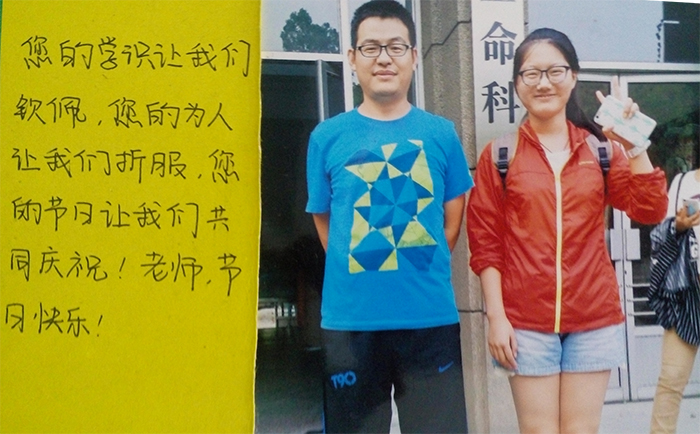 您的学识让我们
钦佩，您的为人
让我们折服，您
的节日让我们共
同庆祝！老师，节
日快乐！
命科
T90